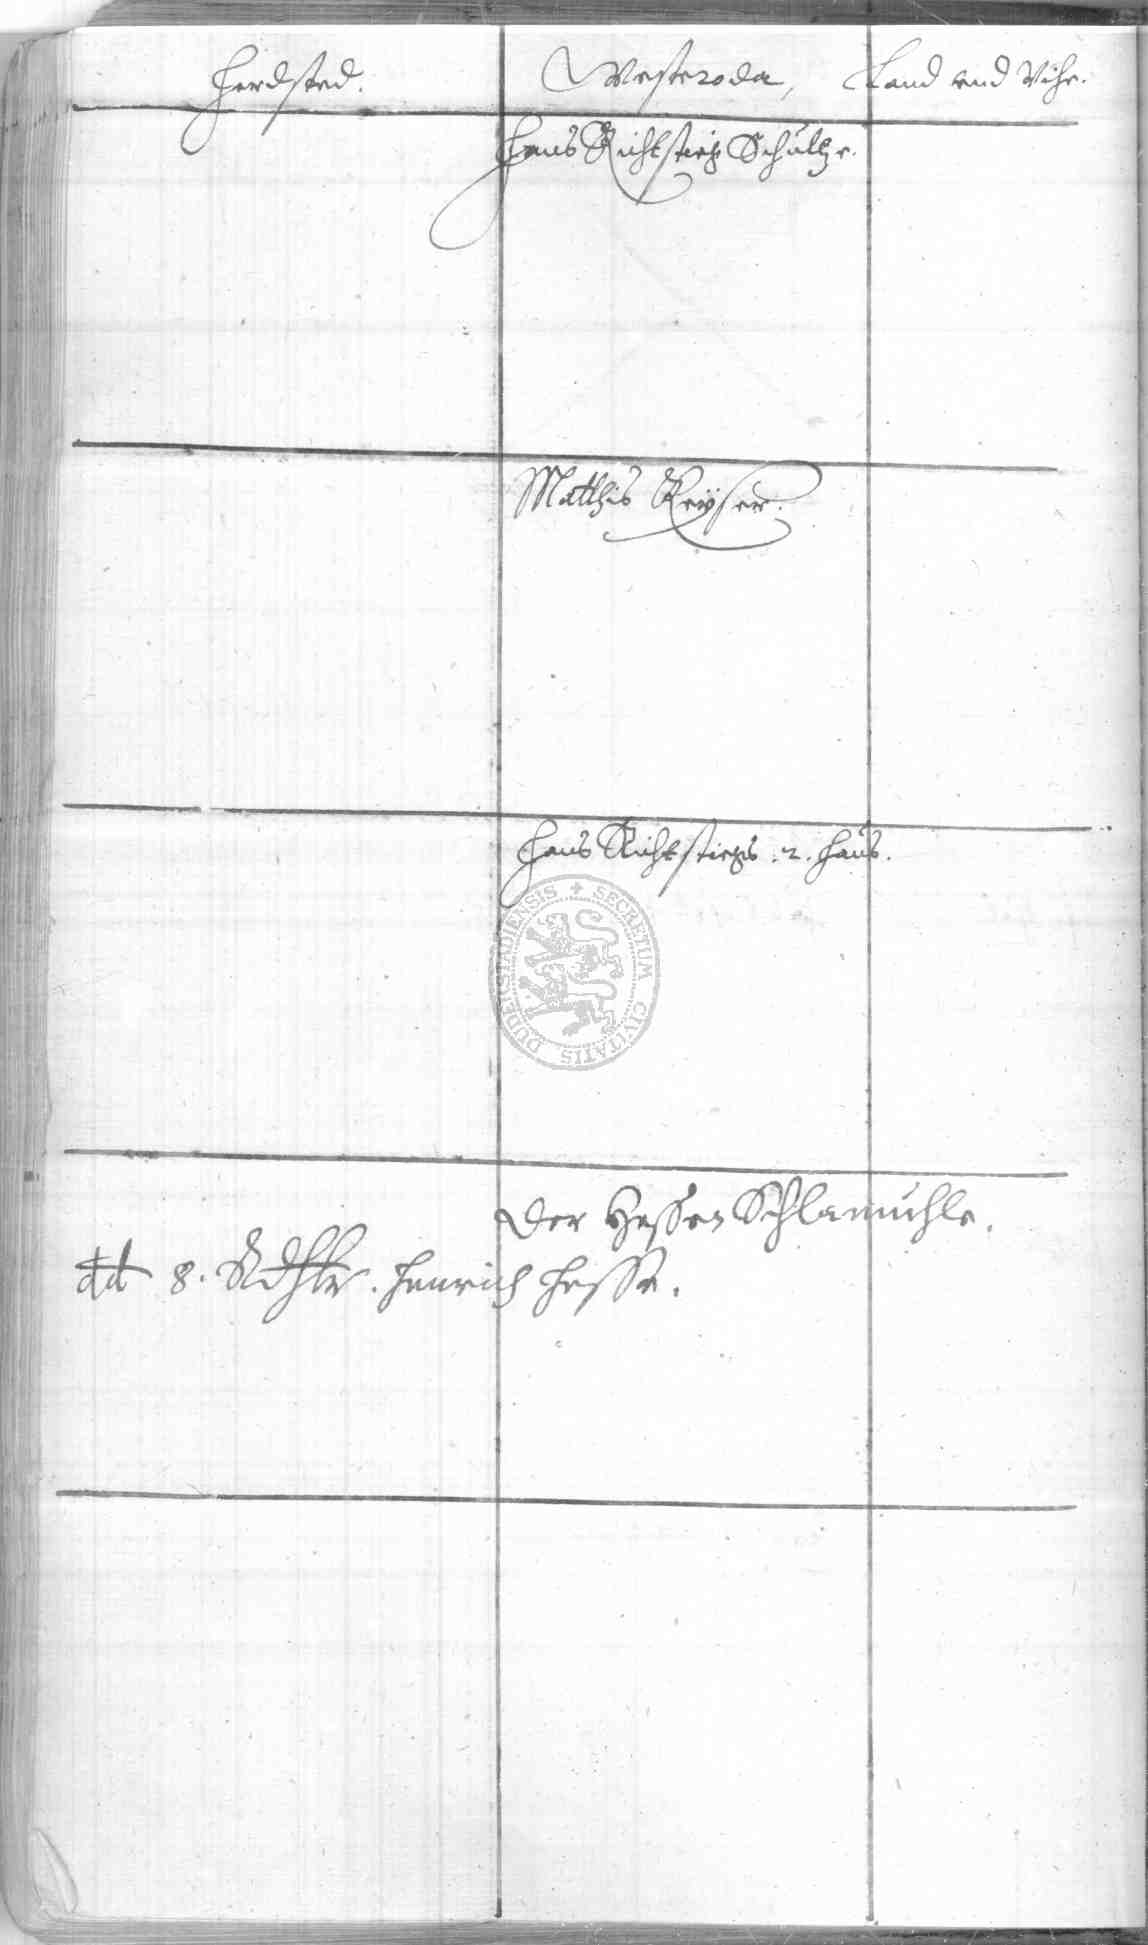 Herdsted. Westeroda, Land und Vihe.
Hans Richtstieg Schultze.
Matthis Keÿser.
Hans Richtstiegs . 2. Haus.
SECRETUM CIVITATIS DUDERSTADIENSIS
Der Hessen Schlamühle.
dd 8. Henrich Hesse.